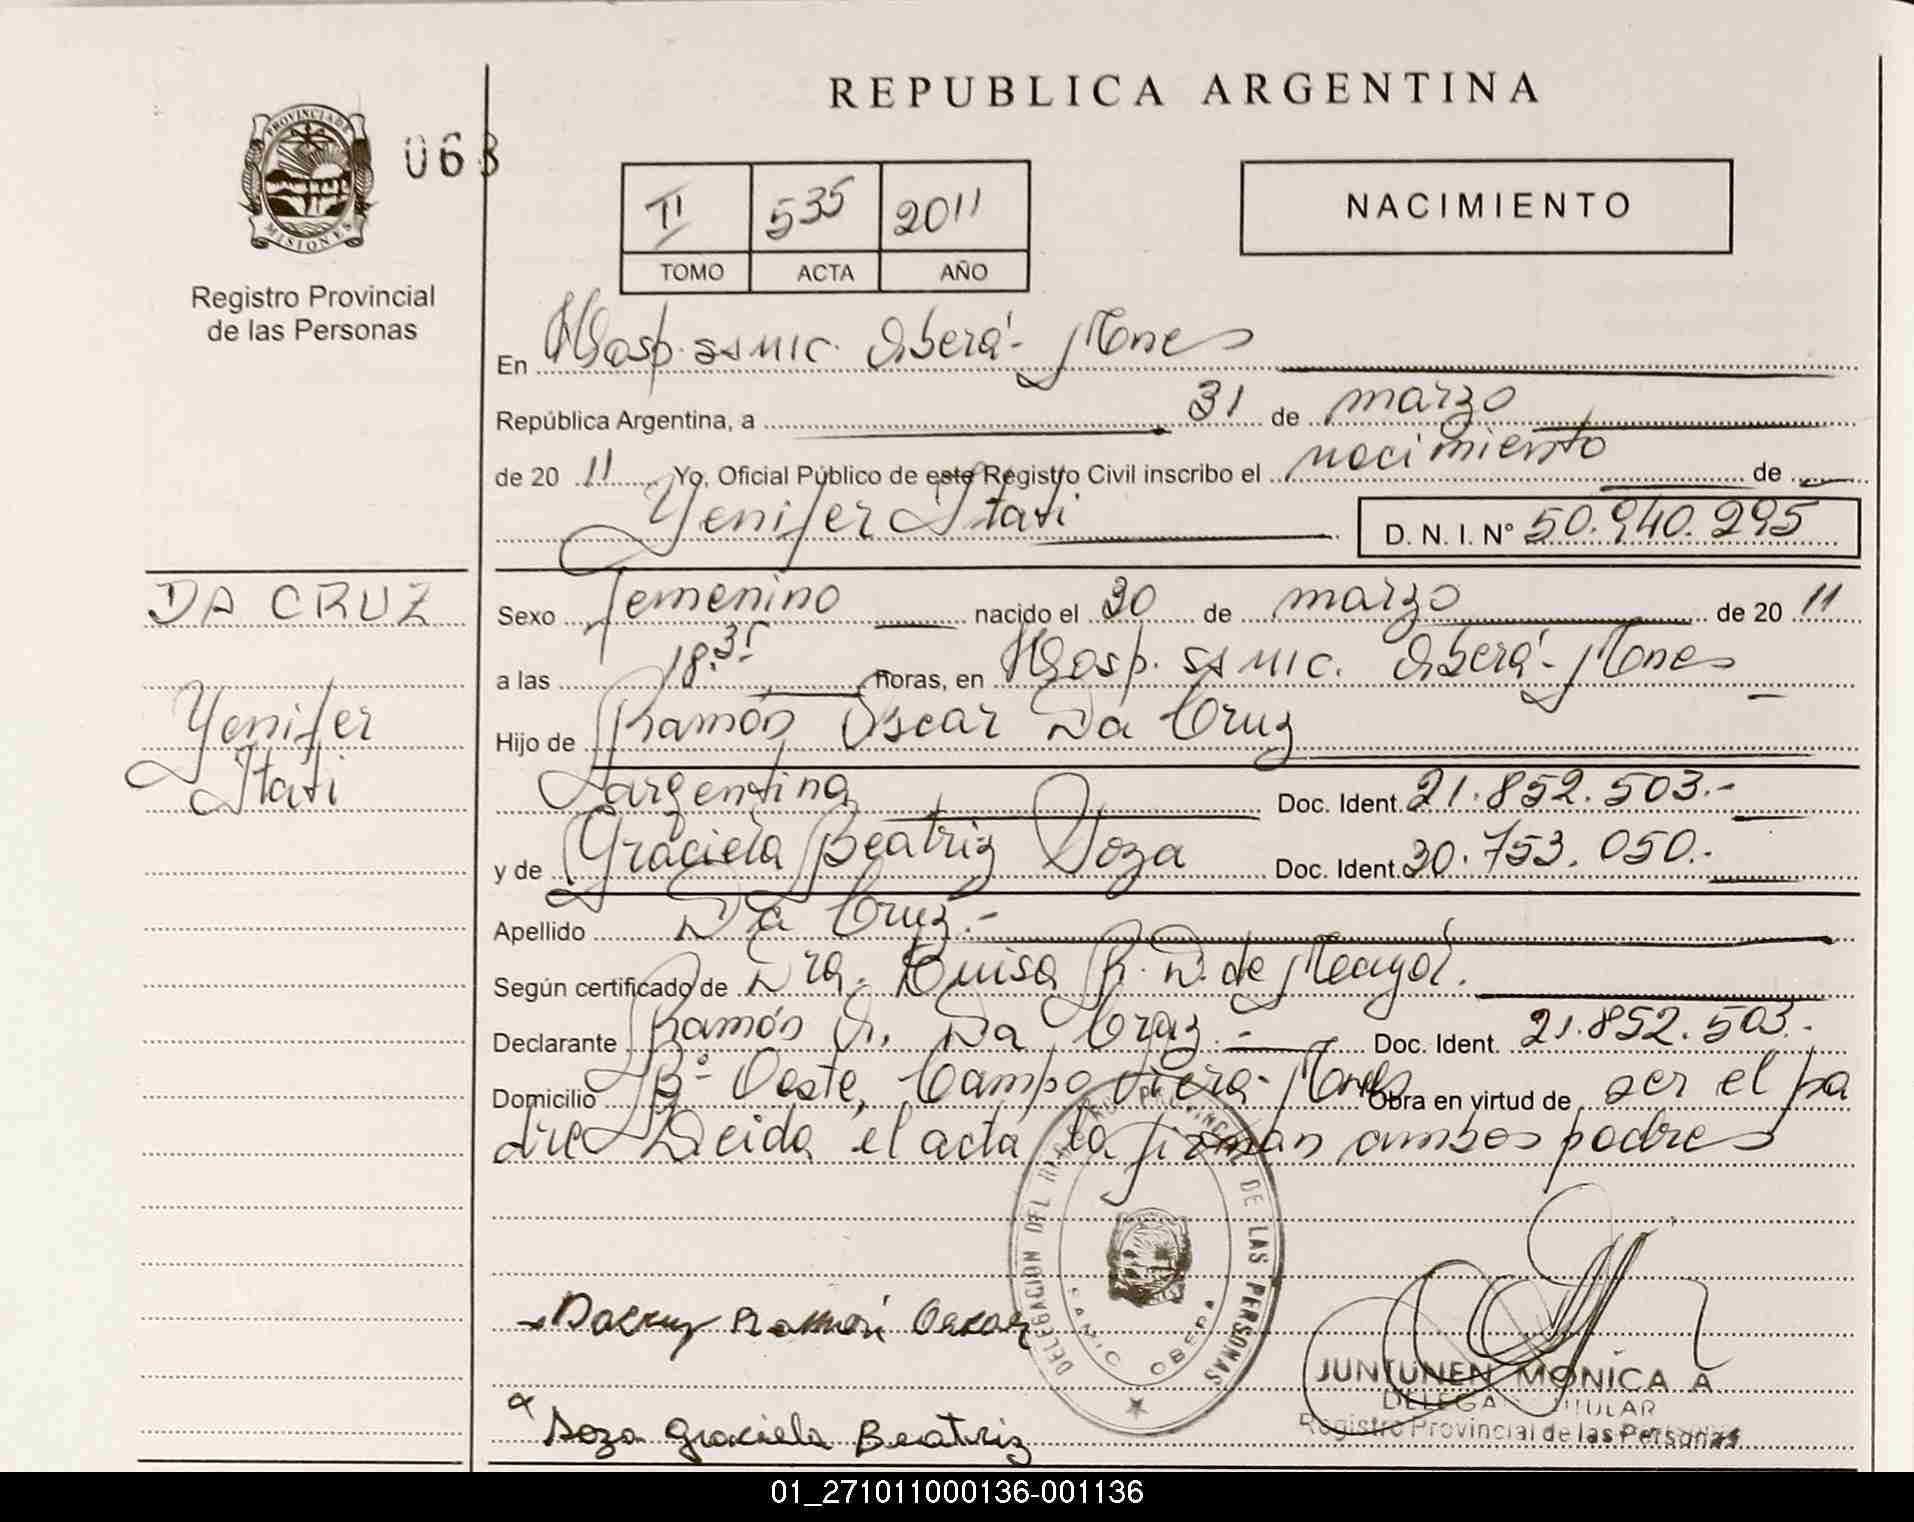 REPUBLICA ARGENTINA
PROVINCIA DE
MISIONES
068
Registro Provincial
de las Personas
TI 535 2011
TOMO ACTA AÑO
NACIMIENTO
En Hosp. SAMIC. Oberá - Mnes
República Argentina, a 31 de marzo
de 20 11 Yo, Oficial Público de este Registro Civil inscribo el nacimiento de
Yenifer Itati
D. N. I. N° 50.940.295
DA CRUZ
Yenifer
Itati
Sexo Femenino nacido el 30 de marzo de 20 11
a las 18.35 horas, en Hosp. SAMIC. Oberá - Mnes
Hijo de Ramón Oscar Da Cruz
argentina Doc. Ident. 21.852.503.-
y de Graciela Beatriz Soza Doc. Ident. 30.753.050.-
Apellido Da Cruz.-
Según certificado de Dra. Luisa R. D. de Mayol.
Declarante Ramón O. Da Cruz.- Doc. Ident. 21.852.503.-
Domicilio B° Oeste, Campo Viera - Mnes Obra en virtud de ser el pa
dre Leida el acta la firman ambos padres
DELEGACION DEL REGISTRO PROVINCIAL DE LAS PERSONAS
SAMIC OBERA
Dacruz Ramón Oscar
Soza Graciela Beatriz
JUNTUNEN MONICA A
DELEGA TITULAR
Registro Provincial de las Personas
01_271011000136-001136